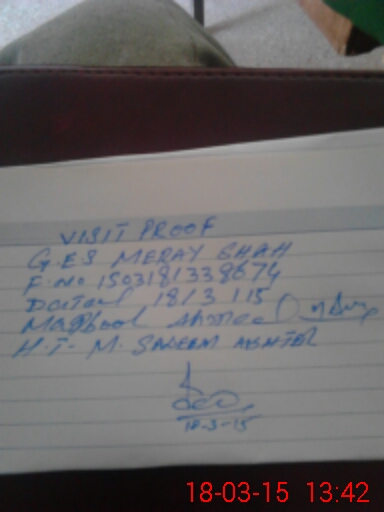 VISIT PROOF
G.E.S MERAY SHAH
F.No 1503181338674
Dated 18/3/15
Maqbool Ahmed
H.T- M. SALEEM AKHTER
18-3-15
18-03-15 13:42